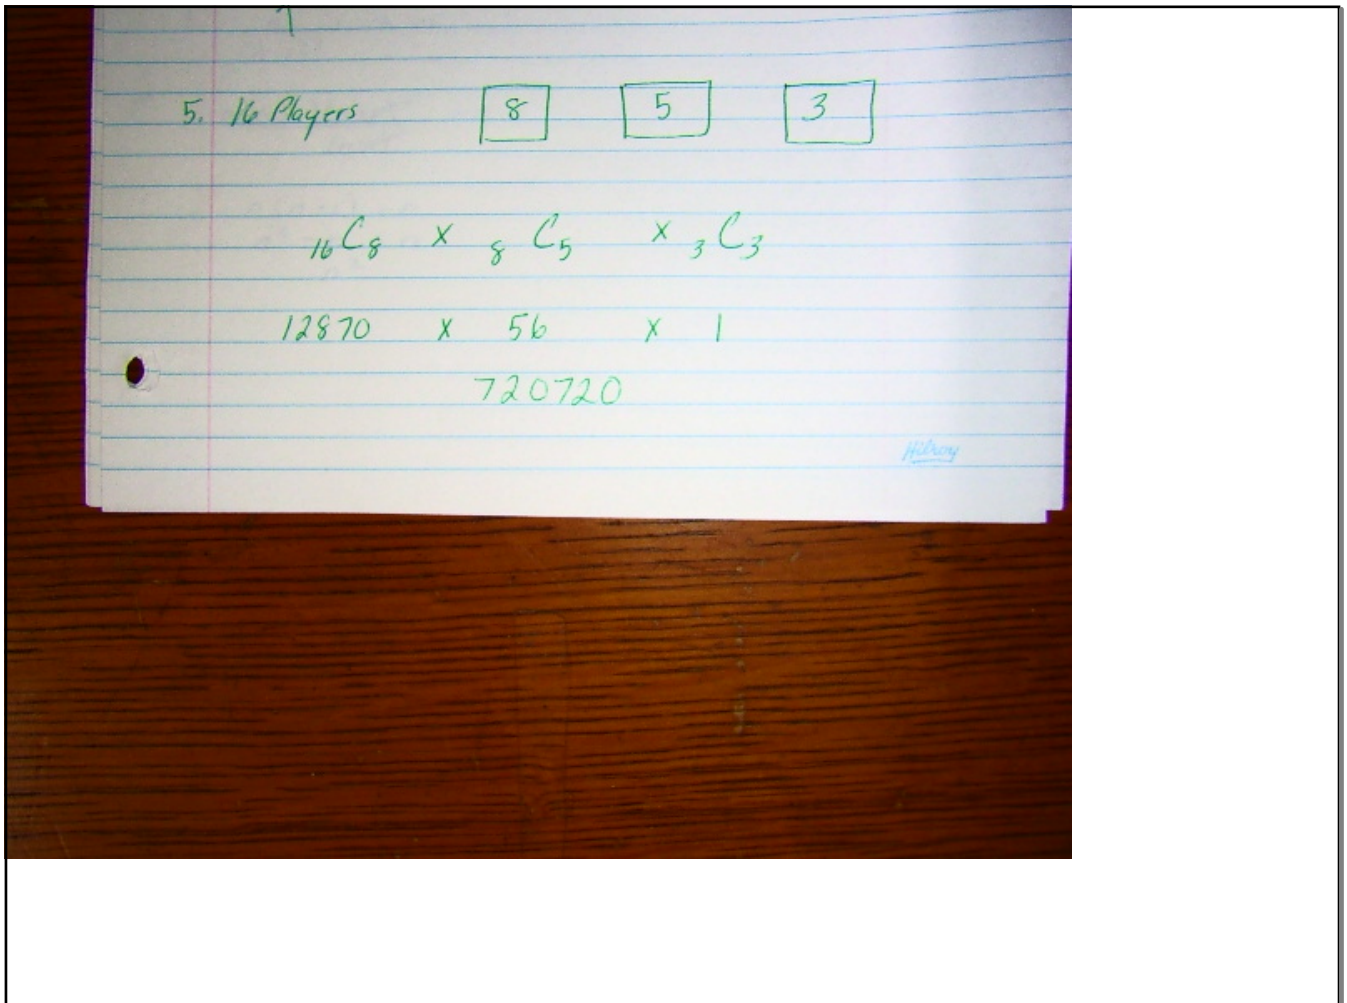 5. 16 Players 8 5 3
16C8 x 8C5 x 3C3
12870 x 56 x 1
720720
Hilroy